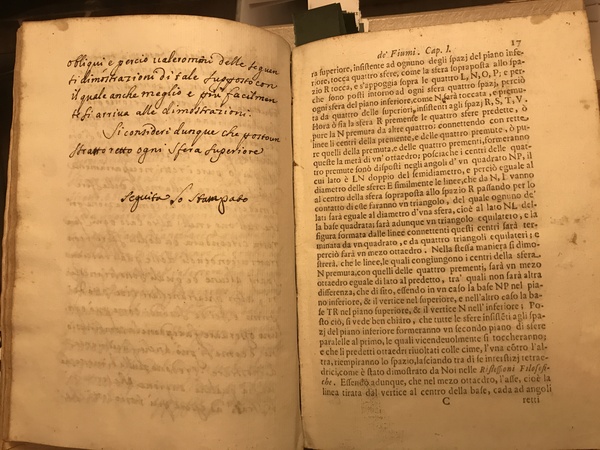 obliqui e perciò valeremoni delle seguen
ti dimostrazioni di tale supposto con
il quale anche meglio e più facilmen
te si arriva alle dimostrazioni.
Si consideri dunque che posto un
strato retto ogni sfera superiore
Seguita lo Stampato
de' Fiumi. Cap. I. 17
ra superiore, insistente ad ognuno degli spazj del piano infe-
riore, tocca quattro sfere, come la sfera soprapposta allo spa-
zio R tocca, e s'appoggia sopra le quattro L, N, O, P; e per-
che sono posti intorno ad ogni sfera quattro spazj, perciò
ogni sfera del piano inferiore, come N, sarà toccata, e premu-
ta da quattro delle superiori, insistenti agli spazj R, S, T, V.
Hora ò sia la sfera R premente le quattro sfere predette, ò
pure la N premuta da altre quattro: connettendo con rette,
linee li centri della premente, e delle quattro premute, ò pu-
re quelli della premuta, e delle quattro prementi, formeranno
queste la metà di vn' ottaedro; posciache i centri delle quat-
tro premute sono disposti negli angoli d' vn quadrato NP, il
cui lato è LN doppio del semidiametro, e perciò eguale al
diametro delle sfere: E similmente le linee, che da N, L vanno
al centro della sfera soprapposta allo spazio R passando per lo
contatto di esse faranno vn triangolo, del quale ognuno de'
lati sarà eguale al diametro d'vna sfera, cioè al lato NL del-
la base quadrata: sarà adunque vn triangolo equilatero, e la
figura formata dalle linee connettenti questi centri sarà ter-
minata da vn quadrato, e da quattro triangoli equilateri; e
perciò sarà vn mezo ottaedro. Nella stessa maniera si dimo-
strerà, che le linee, le quali congiungono i centri della sfera
N premuta, con quelli delle quattro prementi, sarà vn mezo
ottaedro eguale di lato al predetto, tra' quali non sarà altra
differenza, che di sito, essendo in vn caso la base NP nel pia-
no inferiore, & il vertice nel superiore, e nell'altro caso la ba-
se TR nel piano superiore, & il vertice N nell' inferiore: Po
sto ciò, si vede ben chiaro, che tutte le sfere insistēti agli spa-
zj del piano inferiore formeranno vn secondo piano di sfere
parallele al primo, le quali vicendeuolmente si toccheranno;
e che li predetti ottaedri riuoltati colle cime, l'vna cōtro l'al-
tra, riempiranno lo spazio, lasciando tra di se interstizj tetrae-
drici, come è stato dimostrato da Noi nelle Riflessioni Filosofi-
che. Essendo adunque, che nel mezo ottaedro, l'asse, cioè la
linea tirata dal vertice al centro della base, cada ad angoli
C retti